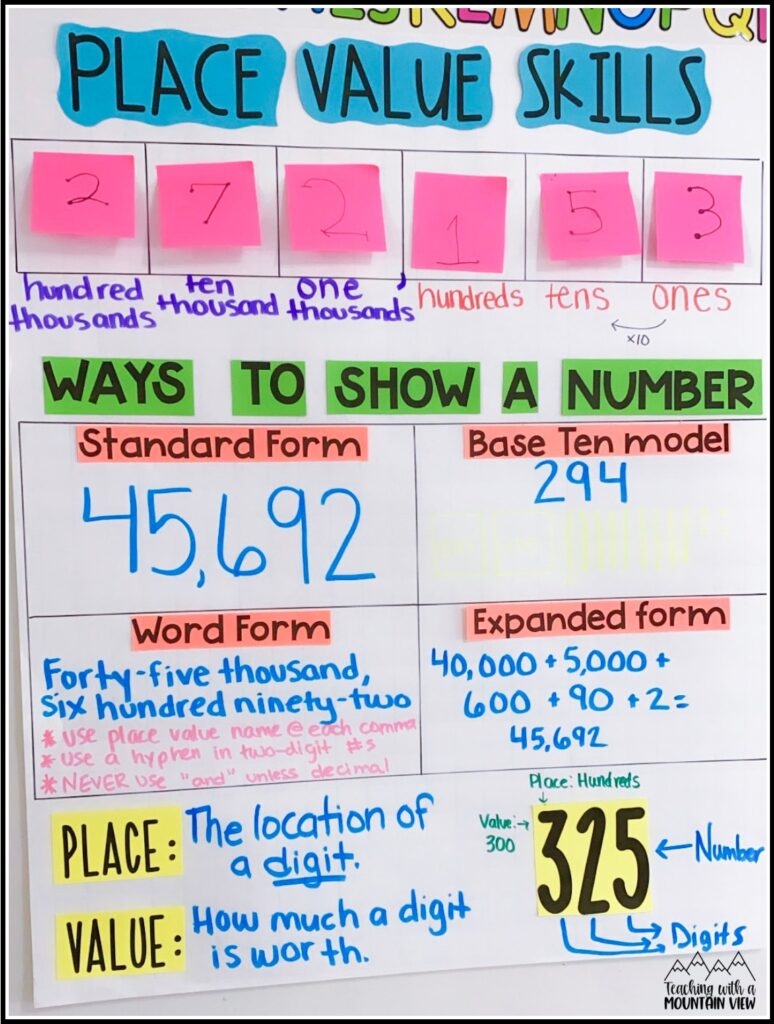 PLACE VALUE SKILLS
2 7 2 1 5 3
hundred thousands ten thousand one thousands , hundreds tens ones
x10
WAYS TO SHOW A NUMBER
Standard Form
45,692
Base Ten model
294
Word Form
Forty-five thousand,
six hundred ninety-two
* use place value name @ each comma
* Use a hyphen in two-digit #s
* NEVER use "and" unless decimal
Expanded form
40,000 + 5,000 +
600 + 90 + 2 =
45,692
PLACE: The location of
a digit.
VALUE: How much a digit
is worth.
Place: Hundreds
Value:
300
325
Number
Digits
Teaching with a
MOUNTAIN VIEW